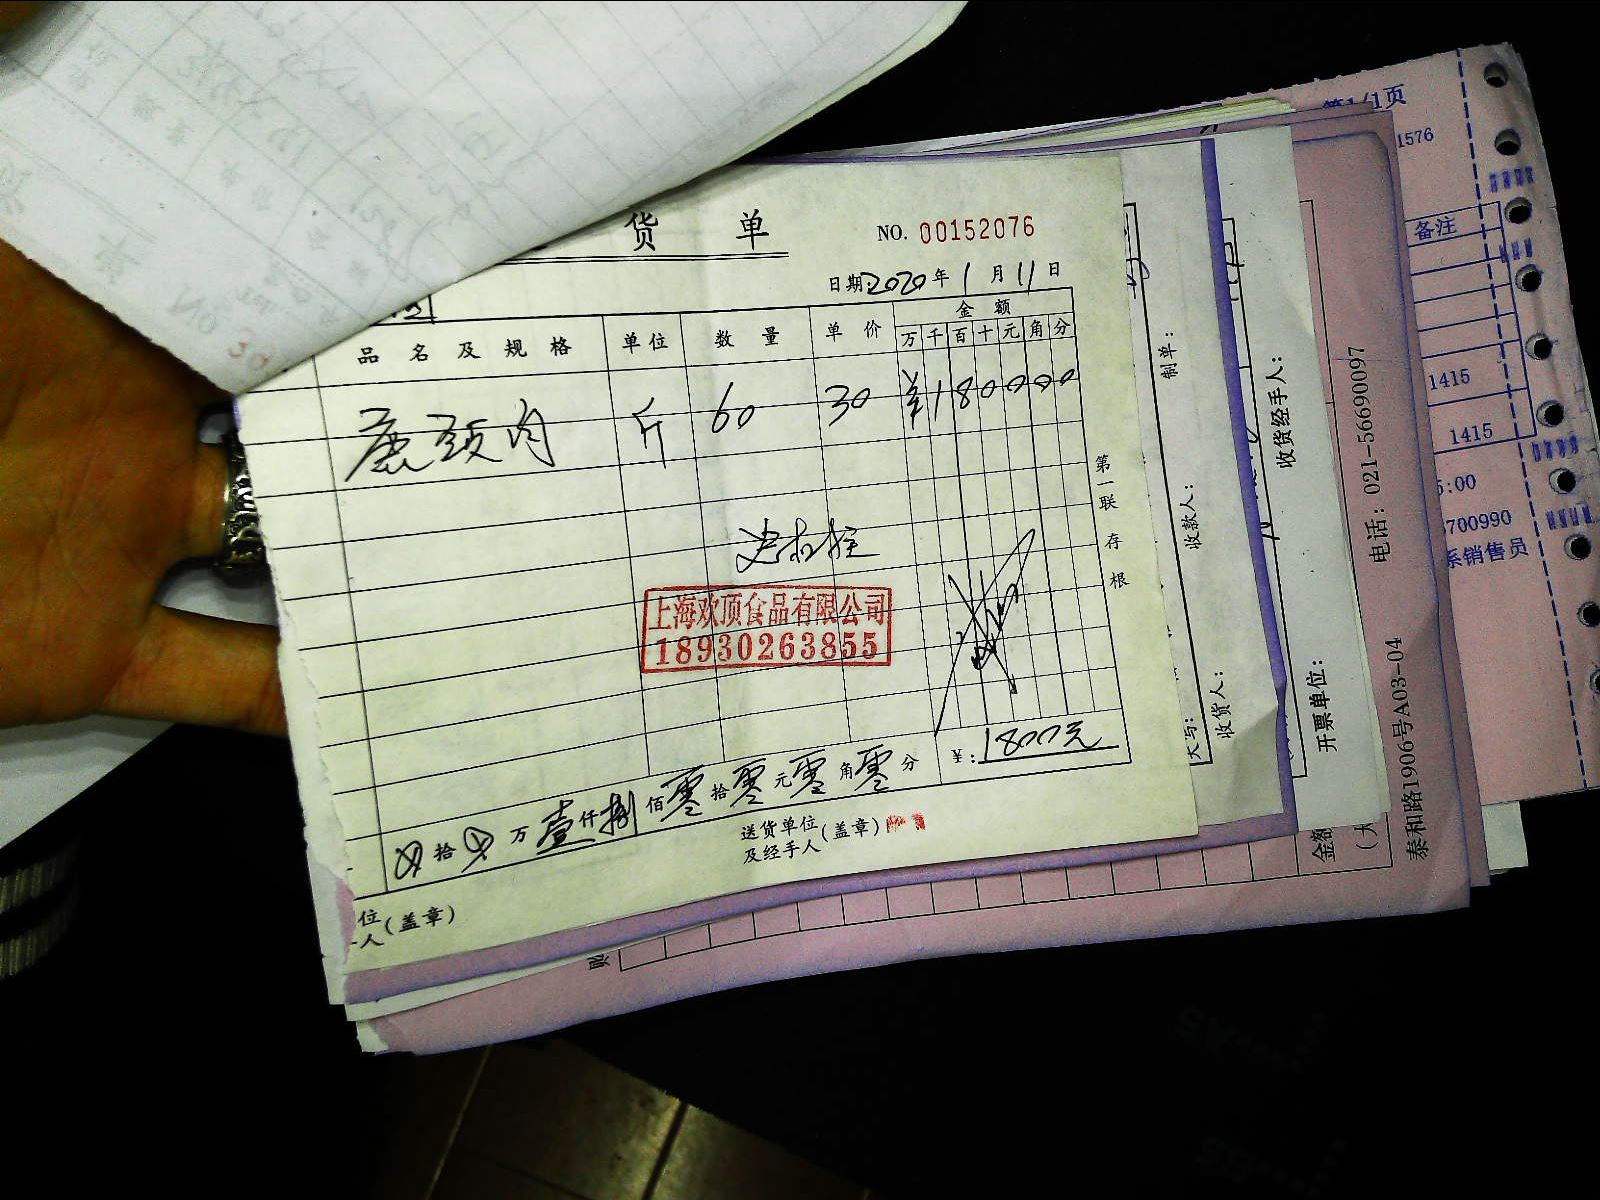 货 单
NO. 00152076
日期:2020年1月11日
品名及规格 单位 数量 单价 金额
万 千 百 十 元 角 分
鹿颈肉 斤 60 30 ¥180000
第一联 存根
上海欢顶食品有限公司
18930263855
¥:1800元
拾 万 壹仟捌佰零拾零元零角零分
送货单位
及经手人(盖章)
位
人(盖章)
制单:
收款人:
收货人:
收货经手人:
开票单位:
电话:021-56690097
泰和路1906号A03-04
1/1页
1576
备注
1415
1415
5:00
3700990
系销售员